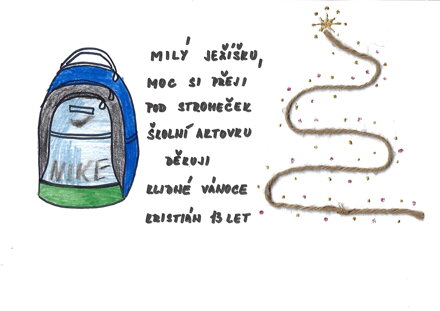 MILÝ JEŽÍŠKU,
MOC SI PŘEJI
POD STROMEČEK
ŠKOLNÍ AKTOVKU
DĚKUJI
KLIDNÉ VÁNOCE
KRISTIÁN 13 LET
NIKE